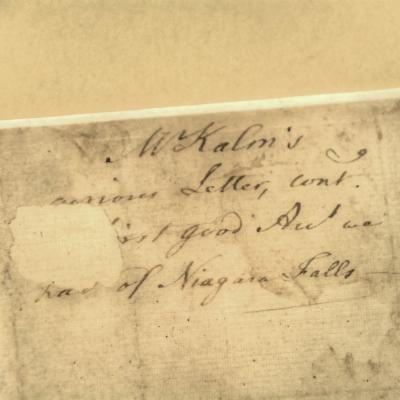 Mr Kalm's
curious Letter, cont.
first good Acct we
had of Niagara Falls